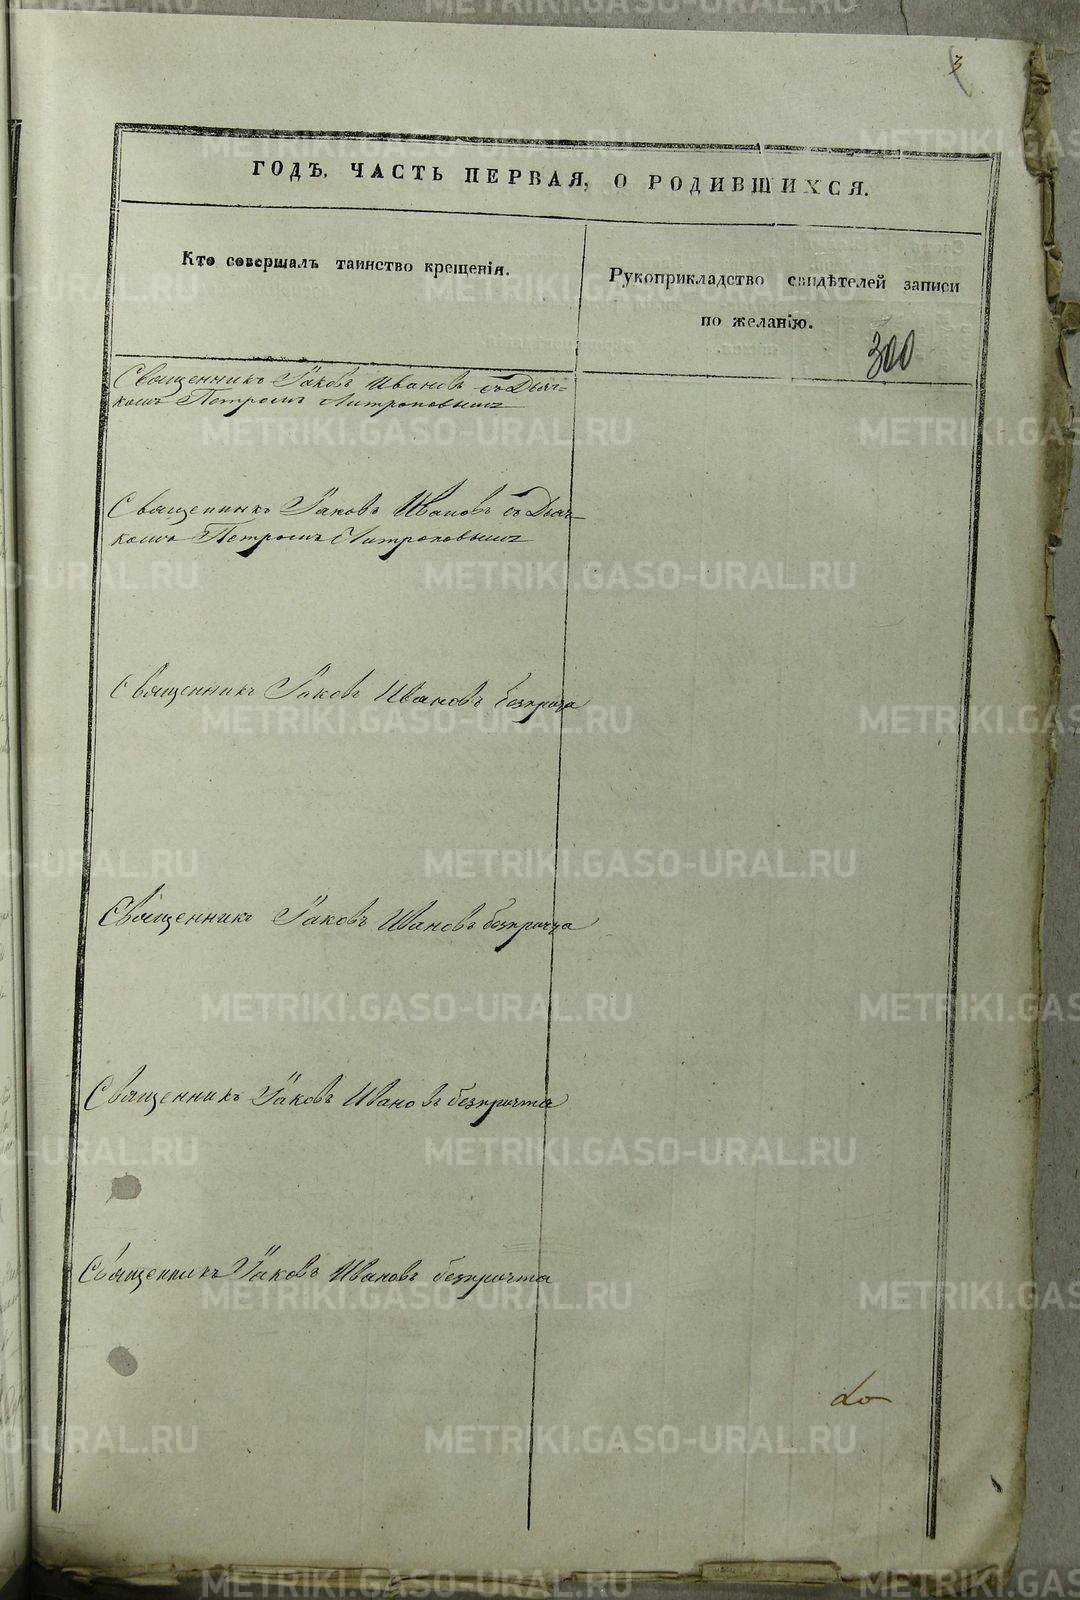 3
ГОДЪ, ЧАСТЬ ПЕРВАЯ, О РОДИВШИХСЯ.
Кто совершалъ таинство крещенія.
Рукоприкладство свидѣтелей записи
по желанію.
300
Священникъ Іаковъ Ивановъ съ Дьяч-
комъ Петромъ Митроповымъ
Священникъ Іаковъ Ивановъ съ Дьяч-
комъ Петромъ Митроповымъ
Священникъ Іаковъ Ивановъ безпричта
Священникъ Іаковъ Ивановъ безпричта
Священникъ Іаковъ Ивановъ безпричта
Священникъ Іаковъ Ивановъ безпричта
METRIKI.GASO-URAL.RU